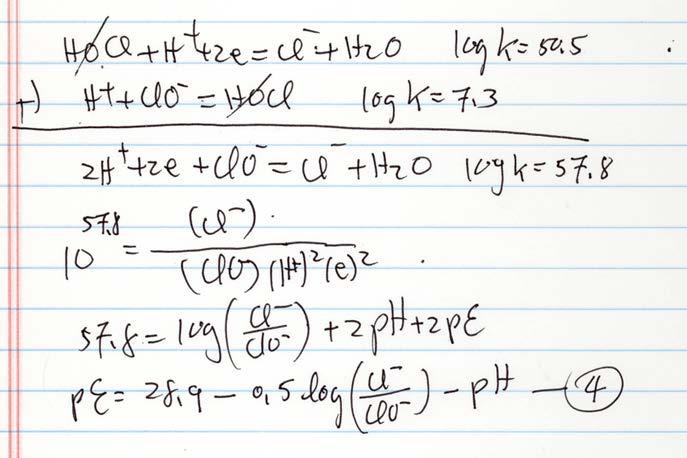 HOCl + H⁺ + 2e = Cl⁻ + H₂O log k = 50.5
+) H⁺ + ClO⁻ = HOCl log k = 7.3
2H⁺ + 2e + ClO⁻ = Cl⁻ + H₂O log k = 57.8
10^57.8 = (Cl⁻) / (ClO⁻)(H⁺)²(e)²
57.8 = log(Cl⁻/ClO⁻) + 2pH + 2pε
pε = 28.9 − 0.5 log(Cl⁻/ClO⁻) − pH — ④